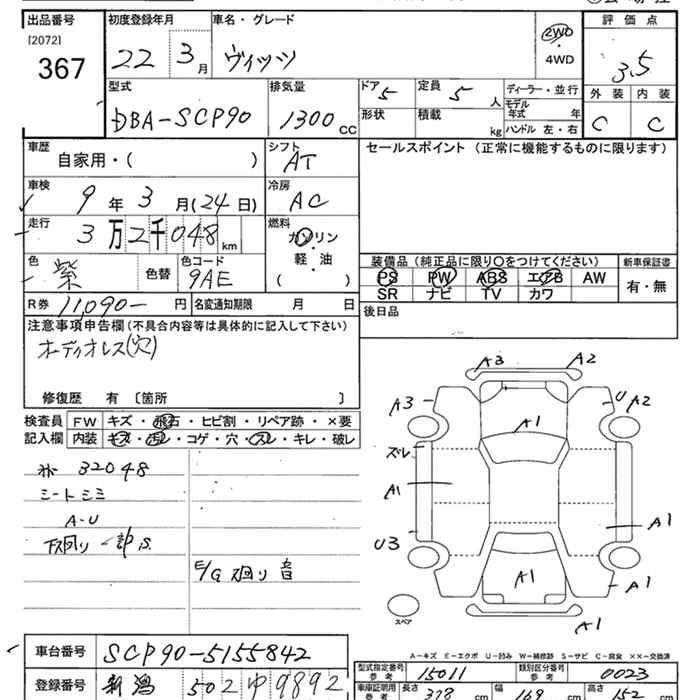 出品番号 初度登録年月 車名・グレード 評価点
[2072]
367 22 3月 ヴィッツ 2WD・4WD 3.5
型式 排気量 ドア 5 定員 5人 ディーラー・並行 外装 内装
DBA-SCP90 1300CC 形状 積載 kg モデル年式 年 ハンドル 左・右 C C
車歴 自家用・( ) シフト AT セールスポイント (正常に機能するものに限ります)
車検 9年3月(24日) 冷房 AC
走行 3万2千048km 燃料 ガソリン・軽・油 ( )
色 紫 色替 色コード 9AE
装備品 (純正品に限り〇をつけてください) 新車保証書
PS PW ABS エアB AW 有・無
SR ナビ TV カワ
R券 11,090-円 名変通知期限 月 日 後日品
注意事項申告欄 (不具合内容等は具体的に記入して下さい)
オーディオレス(穴)
修復歴 有 〔箇所 〕
検査員 FW キズ・飛石・ヒビ割・リペア跡・×要
記入欄 内装 キズ・汚レ・コゲ・穴・スレ・キレ・破レ
32048
シートシミ
A-U
下廻り一部S.
E/G廻り音
A3 A2
A3 U A2
A1
ズレ
A1
A1
U3
A1 A1
スペア
A1
A-キズ E-エクボ U-凹み W-補修跡 S-サビ C-腐食 ××-交換済
車台番号 SCP90-5155842
型式指定番号 参考 15011 類別区分番号 参考 0023
登録番号 新潟 502 ゆ 9892
車庫証明用 参考 長さ 378 cm 幅 169 cm 高さ 152 cm